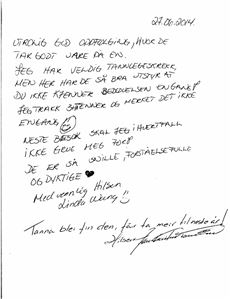 27.06.2014.
UTROLIG GOD OPPFØLGING, HVOR DE
TAR GODT VARE PÅ EN.
JEG HAR VELDIG TANNLEGESKREKK,
MEN HER HAR DE SÅ BRA UTSTYR AT
DU IKKE KJENNER BEDØVELSEN ENGANG!
JEG TRAKK TENNER OG MERKET DET IKKE
ENGANG
NESTE BESØK SKAL JEG I HVERTFALL
IKKE GRUE MEG FOR!
DE ER SÅ SNILLE, FORSTÅELSEFULLE
OG DYKTIGE
Med vennlig Hilsen
Linda
Tanna blei fin den, får ta meir til neste år!
Hilsen